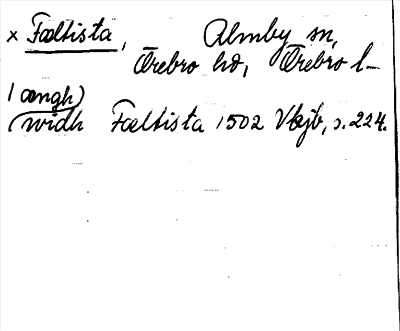 x Fæltista, Almby sn,
Örebro hd, Örebro l-
(ængh)
widh Fæltista 1502 Vkjb, s. 224.